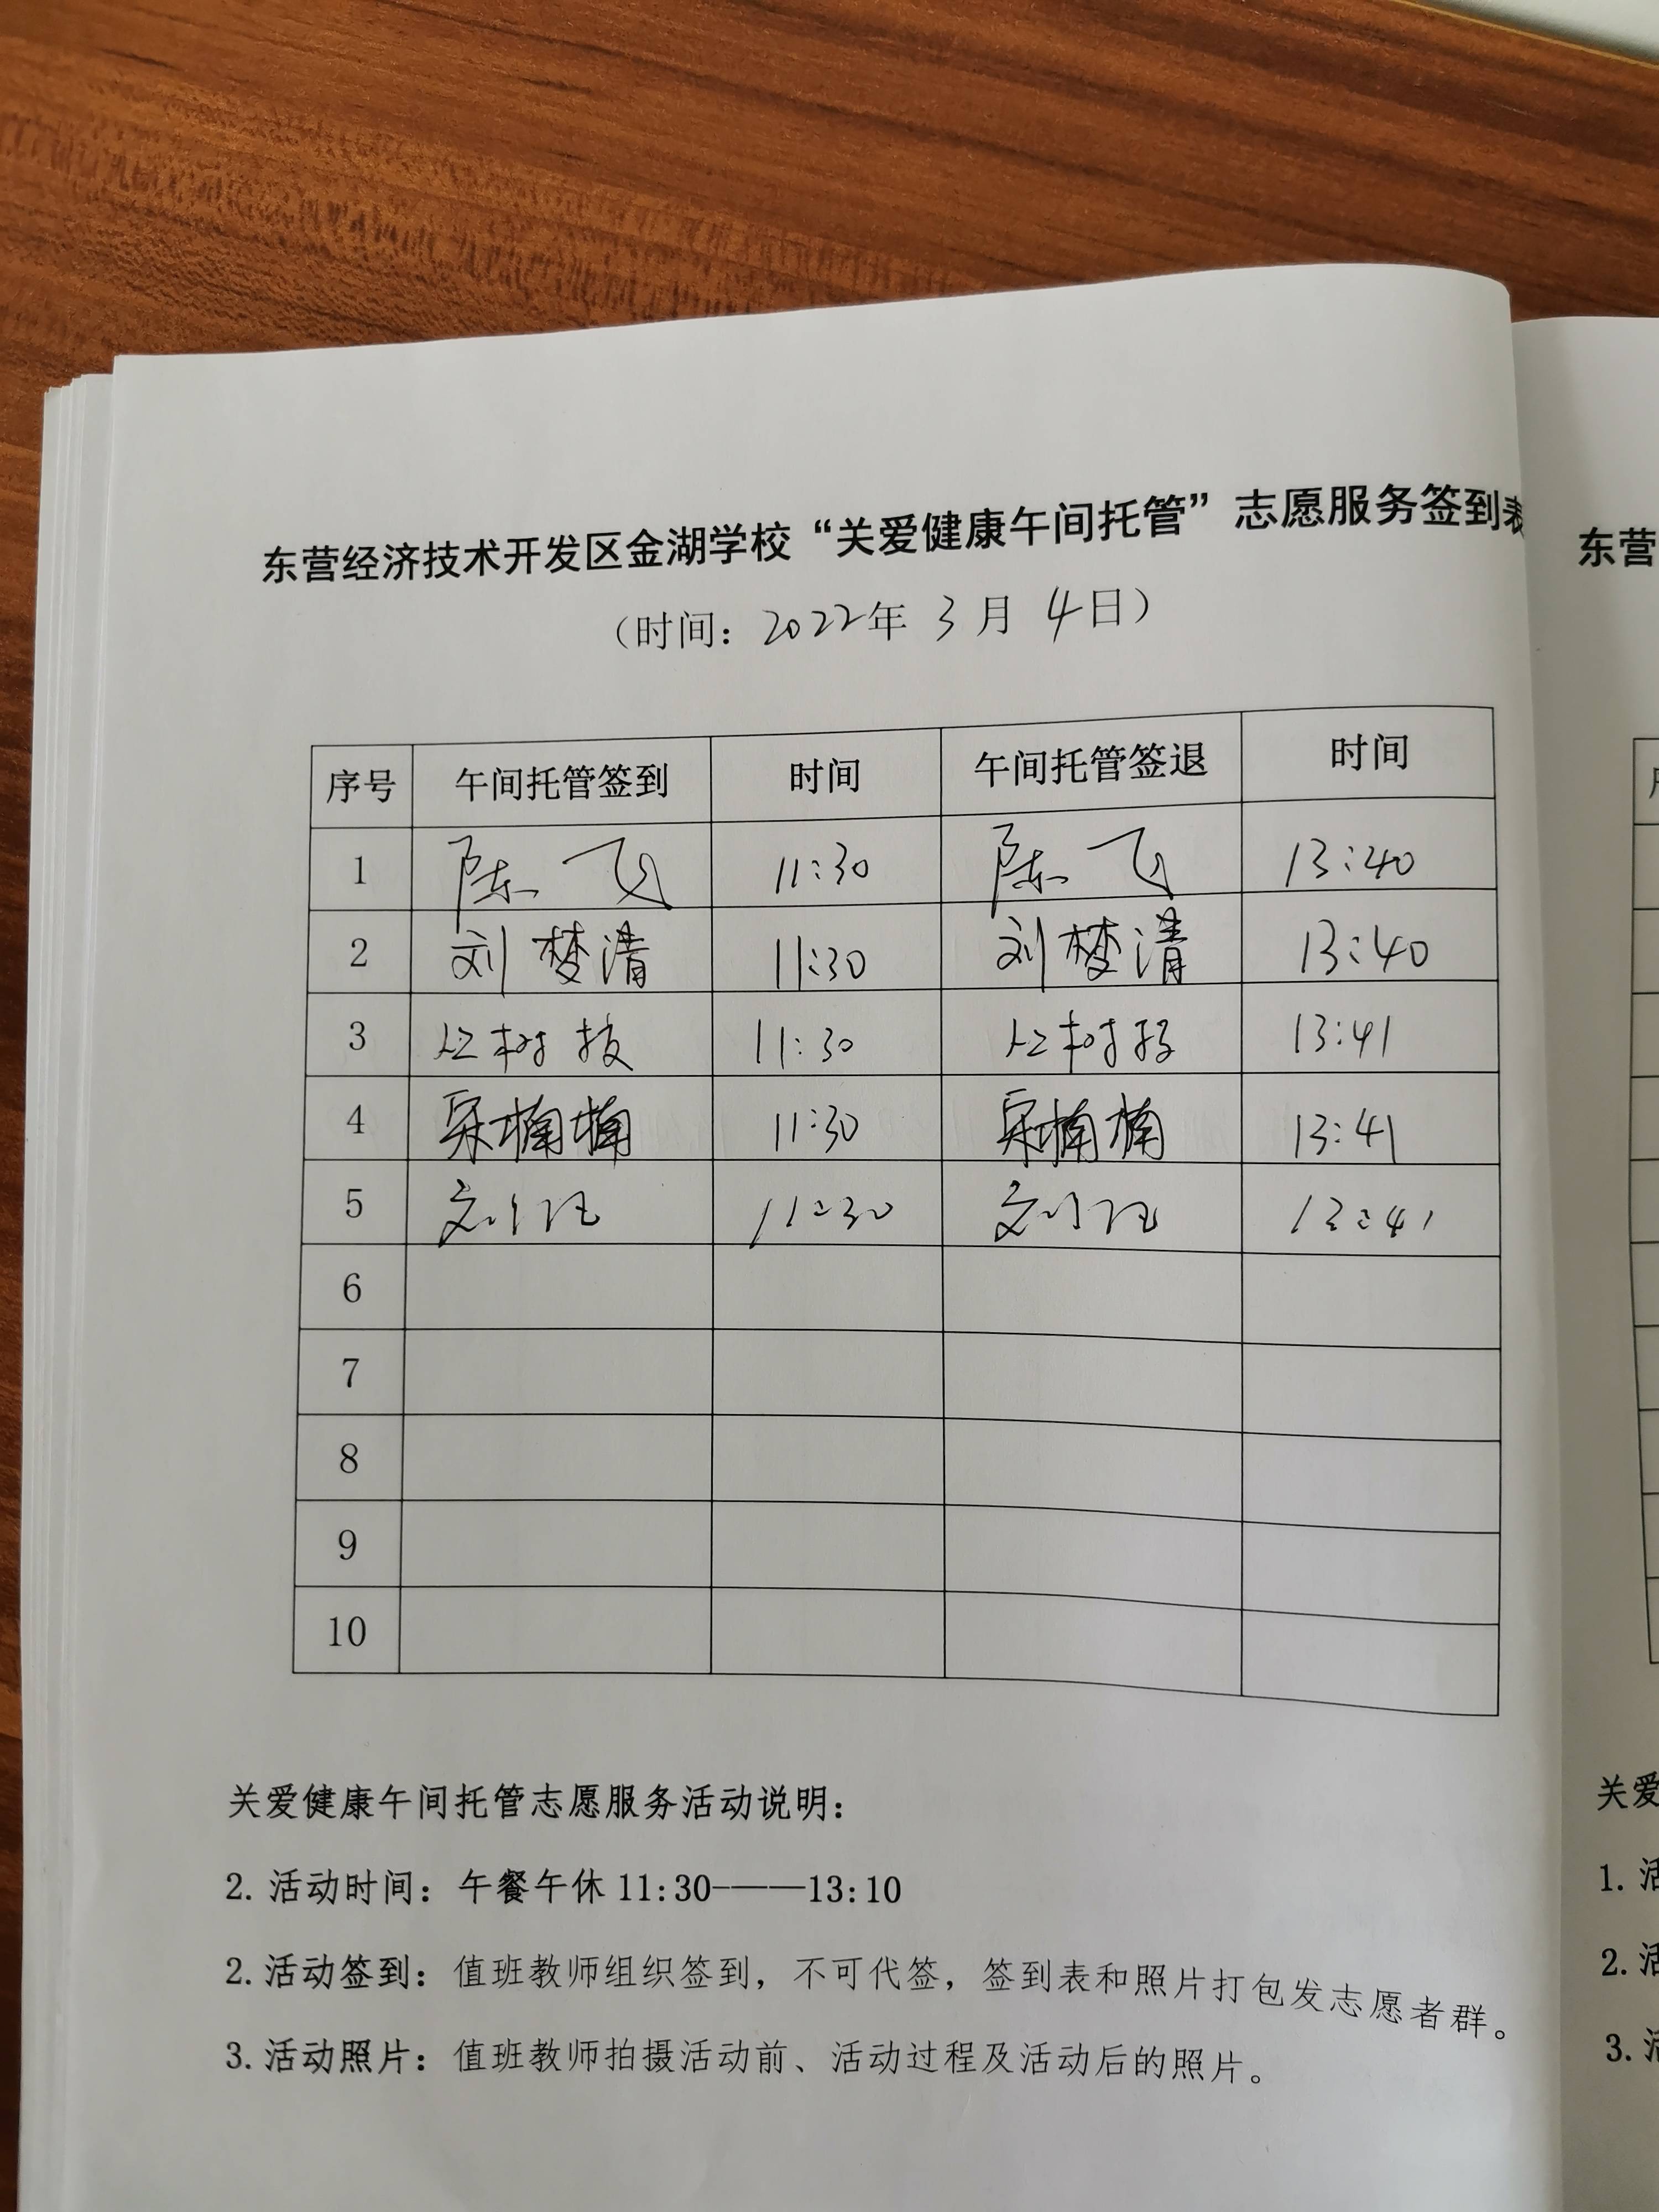 东营经济技术开发区金湖学校“关爱健康午间托管”志愿服务签到表
（时间：2022年 3月 4日）
序号 午间托管签到 时间 午间托管签退 时间
1 陈飞 11:30 陈飞 13:40
2 刘梦清 11:30 刘梦清 13:40
3 11:30 13:41
4 楠楠 11:30 楠楠 13:41
5 11:30 13:41
6
7
8
9
10
关爱健康午间托管志愿服务活动说明：
2. 活动时间：午餐午休 11:30-——13:10
2. 活动签到：值班教师组织签到，不可代签，签到表和照片打包发志愿者群。
3. 活动照片：值班教师拍摄活动前、活动过程及活动后的照片。
东营
关爱
1. 活
2. 活
3. 活